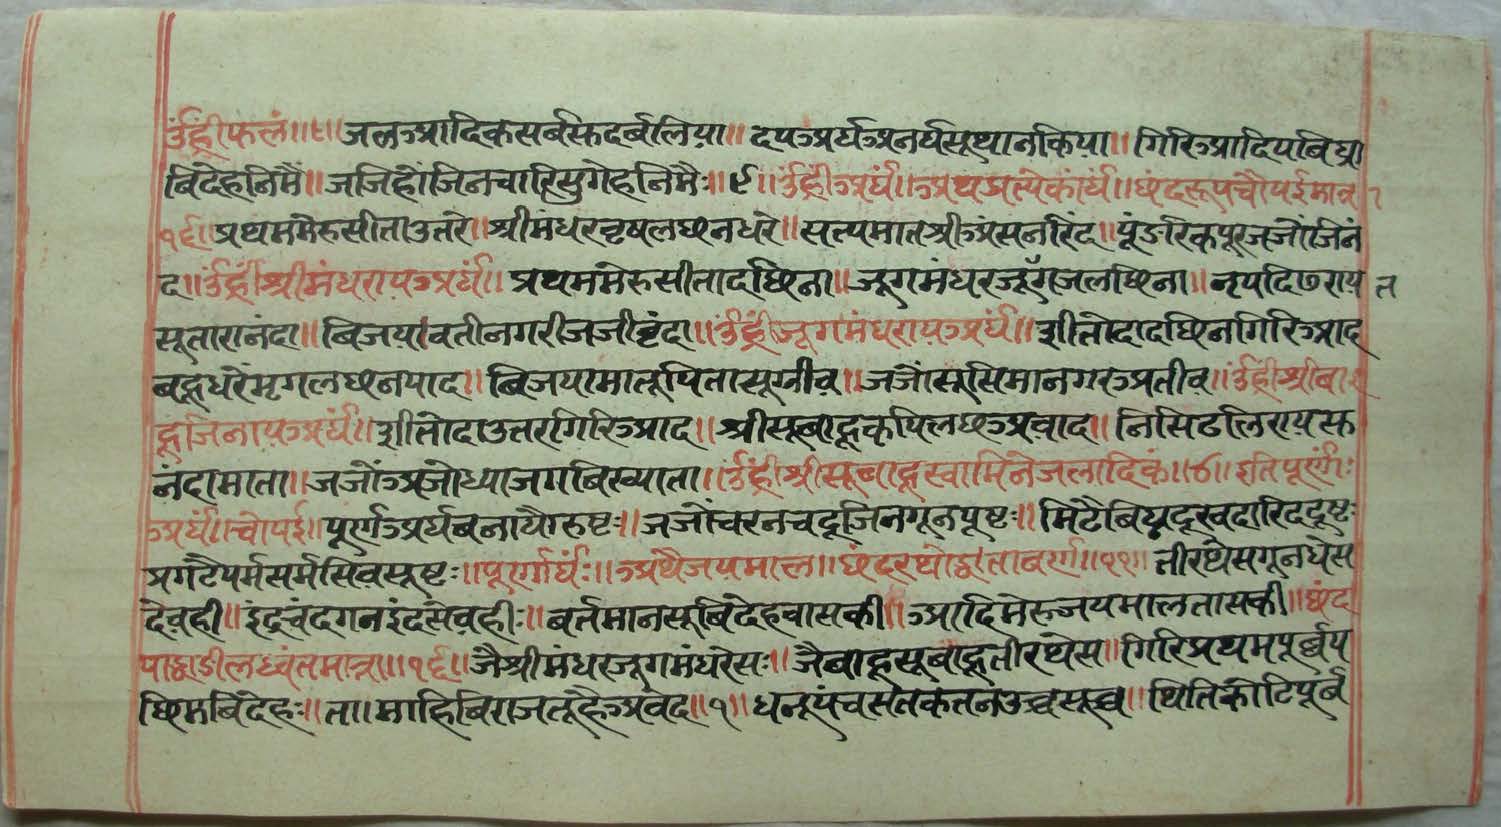 ॐह्रीफलं॥८॥जलआदिकसर्बसुदर्बलिया॥ दपअर्घअनर्घसूथानकिया॥ गिरिआदिपबिघा
बिदेहनिमैं॥ जजिहौंजिनचारिसुगेहनिमैः॥९॥ॐह्रीं अर्घं॥अथप्रत्येकार्घं॥छंदरूपचौपईमात्रा
१६॥प्रथममेरुसीताउतरे॥श्रीमंधरवृषलछनधरे॥सत्यमातश्रीअंसनरिंद॥पूंडरिकपूरजजौंजिनं
द॥ॐह्रींश्रीमंधरायअर्घं॥ प्रथममेरुसीतादछिना॥जूगमंधरजूगजलछिना॥नृपदिठराय
सूतारानंदा॥बिजयावतीनगरीजजीबृंदा॥ॐह्रींजूगमंधरायअर्घं॥शीतोदादछिनगिरिआद
बहूधरेंमृगलछनपाद॥बिजयामातूपितासूग्रीव॥जजौंसूसिमानगरअतीव॥ॐह्रींश्रीबा
हूजिनायअर्घं॥शीतोदाउतरगिरिआद॥श्रीसूबाहूकपिलछअबाद॥निसिढलिरायसू
नंदामाता॥जजौंअजोध्याजगबिख्याता॥ॐह्रींश्रीसूबाहूस्वामिनेजलादिकं॥४॥इतिपूर्णः
अर्घं॥चौपई॥पूर्णअर्घबनायौरुष्टः॥जजौंचरनचहूजिनगूनपूष्टः॥मिटैबिघदूखदारिददूष्टः
प्रगटैधर्मसर्मसिवसूष्टः॥पूर्णार्घः॥अथैजयमाल॥छंदरथोद्धातावर्ण॥११॥तीरथेसगूनधेस
देवही॥इंदुचंदगनइंदसेवहीः॥बर्तमानसूबिदेहवासकी॥आदिमेरुजयमालतासकी॥छंद
पाद्धाडीलध्वंतमात्रा॥१६॥जैश्रीमंधरजूगमंधरेसः॥जैबाहूसूबाहूतीरथेस॥गिरिप्रथमपूर्ब्बप
छिमबिदेहः॥ता॥माहिबिराजतूहैअबेद॥१॥धनूपंचसतकतनउच्चसूच्च॥थितिकोटिपूर्ब